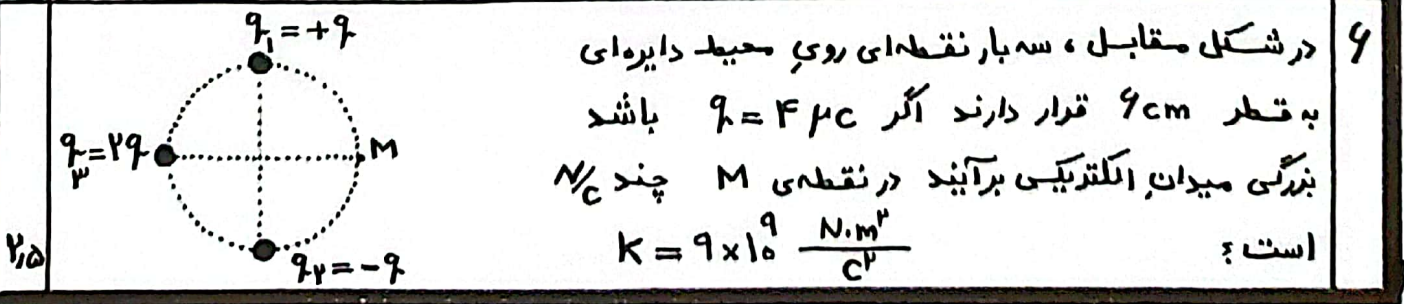 ۶
در شکل مقابل ، سه بار نقطه‌ای روی محیط دایره‌ای
به قطر ۶cm قرار دارند اگر q = ۴ μc باشد
بزرگی میدان الکتریکی برآیند در نقطه‌ی M چند N/C
است ؟ K = ۹×۱۰^۹ N.m^۲/C^۲
q₁ = +q
q₃ = ۲q
M
q₂ = -q
۲٫۵